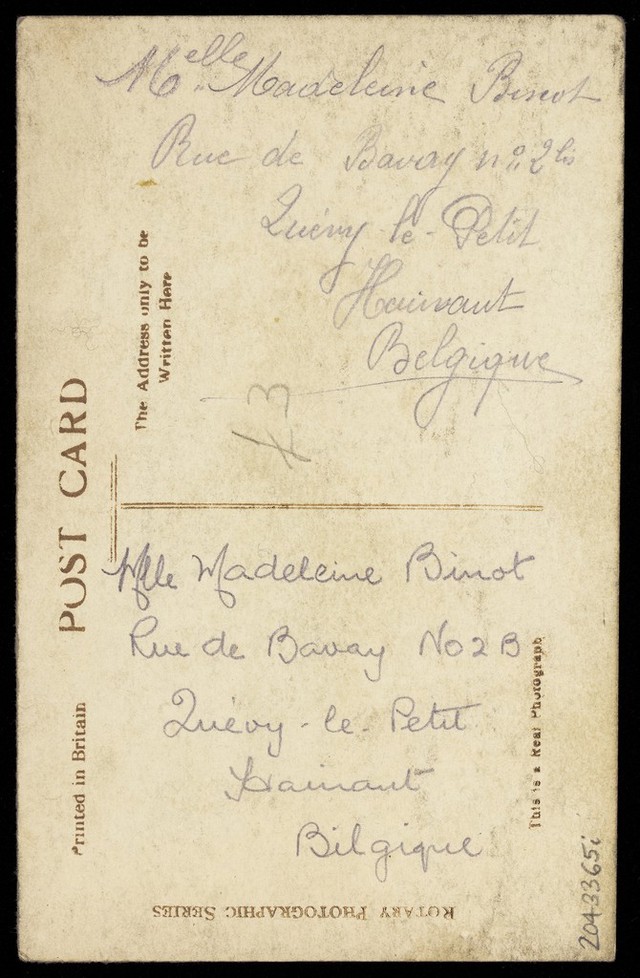 Melle Madeleine Binot
Rue de Bavay no 2bis
Quévy-le-Petit
Hainaut
Belgique
43
The Address only to be
Written Here
POST CARD
Printed in Britain
Mlle Madeleine Binot
Rue de Bavay No 2 B
Quévy-le-Petit
Hainaut
Bilgique
This is a Real Photograph
ROTARY PHOTOGRAPHIC SERIES
2043365i